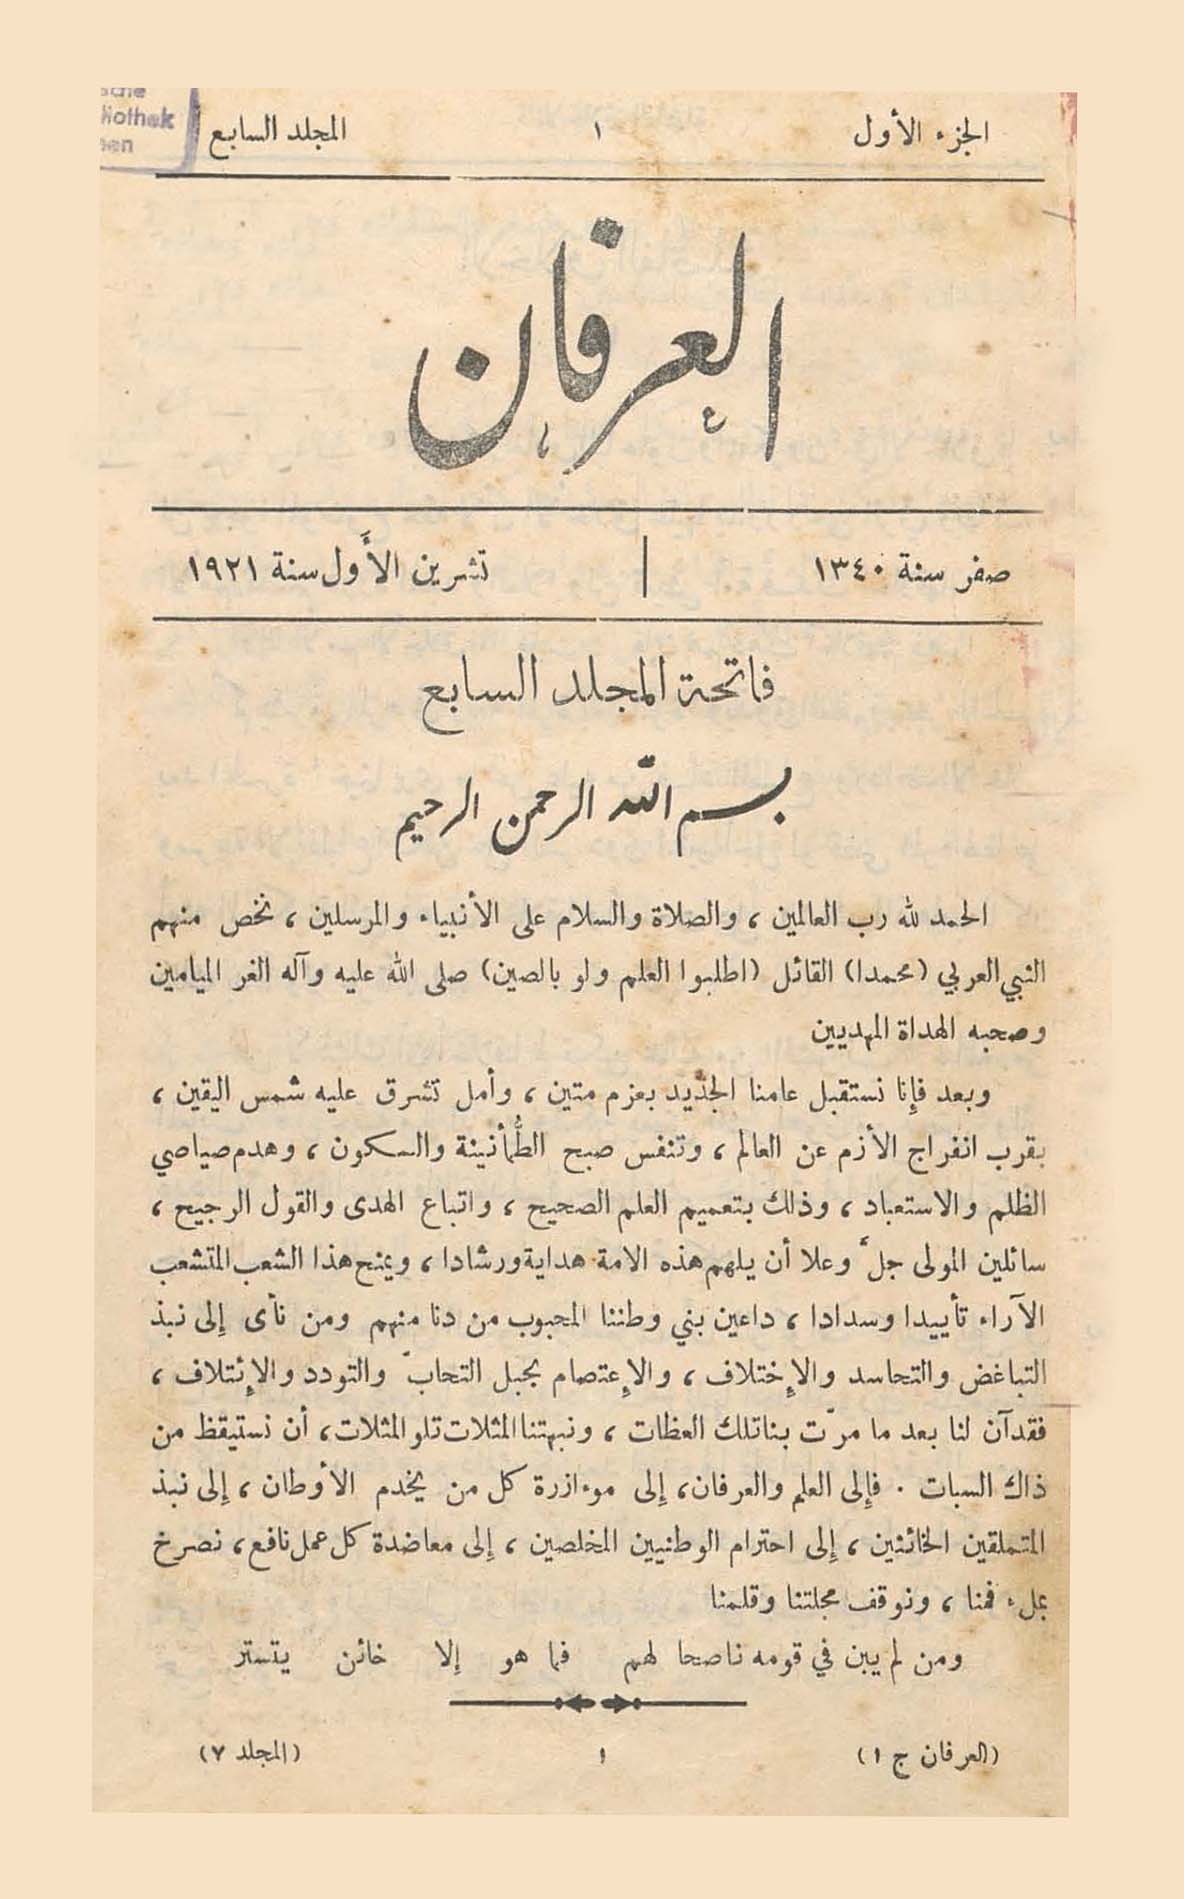 sche
liothek
en
الجزء الأول ١ المجلد السابع
العرفان
صفر سنة ١٣٤٠ | تشرين الأَول سنة ١٩٢١
فاتحة المجلد السابع
بسم الله الرحمن الرحيم
الحمد لله رب العالمين ، والصلاة والسلام على الأنبياء والمرسلين ، نخص منهم
النبي العربي (محمدا) القائل (اطلبوا العلم ولو بالصين) صلى الله عليه وآله الغر الميامين
وصحبه الهداة المهديين
وبعد فإنا نستقبل عامنا الجديد بعزم متين ، وأمل تشرق عليه شمس اليقين ،
بقرب انفراج الأزم عن العالم ، وتنفس صبح الطُّمأنينة والسكون ، وهدم صياصي
الظلم والاستعباد ، وذلك بتعميم العلم الصحيح ، واتباع الهدى والقول الرجيح ،
سائلين المولى جلَّ وعلا أن يلهم هذه الامة هداية ورشادا ، ويمنح هذا الشعب المتشعب
الآراء تأييدا وسدادا ، داعين بني وطننا المحبوب من دنا منهم ومن نأى إلى نبذ
التباغض والتحاسد والإختلاف ، والإعتصام بحبل التحابّ والتودد والإئتلاف ،
فقد آن لنا بعد ما مرّت بنا تلك العظات ، ونبهتنا المثلات تلو المثلات ، أن نستيقظ من
ذاك السبات . فإلى العلم والعرفان ، إلى موءازرة كل من يخدم الأوطان ، إلى نبذ
المتملقين الخائنين ، إلى احترام الوطنيين المخلصين ، إلى معاضدة كل عمل نافع ، نصرخ
بملء فمنا ، ونوقف مجلتنا وقلمنا
ومن لم يبن في قومه ناصحا لهم فما هو إلا خائن يتستر
(العرفان ج ١) ١ (المجلد ٧)